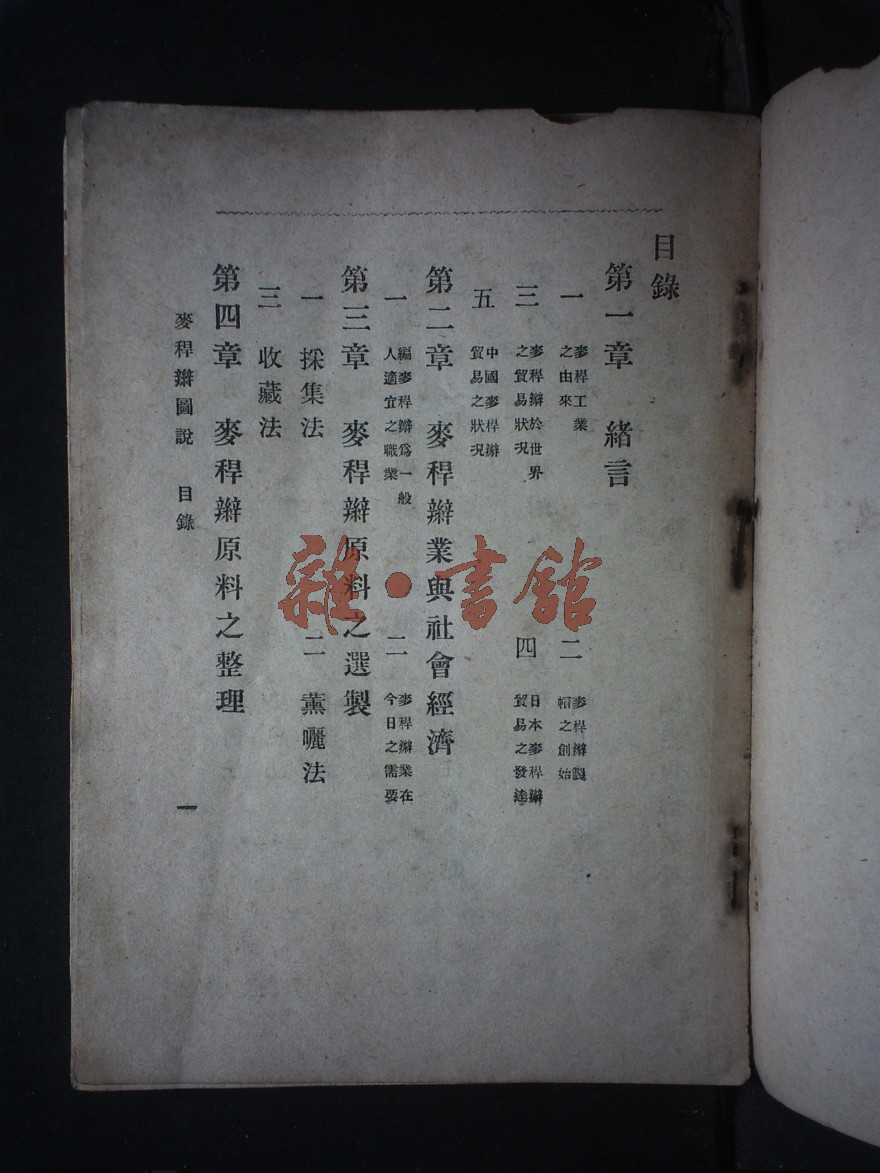 目錄
第一章　緒言
一　麥稈工業之由來　二　麥稈辮製帽之創始
三　麥稈辮於世界之貿易狀況　四　日本麥稈辮貿易之發達
五　中國麥稈辮貿易之狀況
第二章　麥稈辮業與社會經濟
一　編麥稈辮爲一般人適宜之職業　二　麥稈辮業在今日之需要
第三章　麥稈辮原料之選製
一　採集法　二　薰曬法
三　收藏法
第四章　麥稈辮原料之整理
麥稈辮圖說　目錄　一
雜·書館